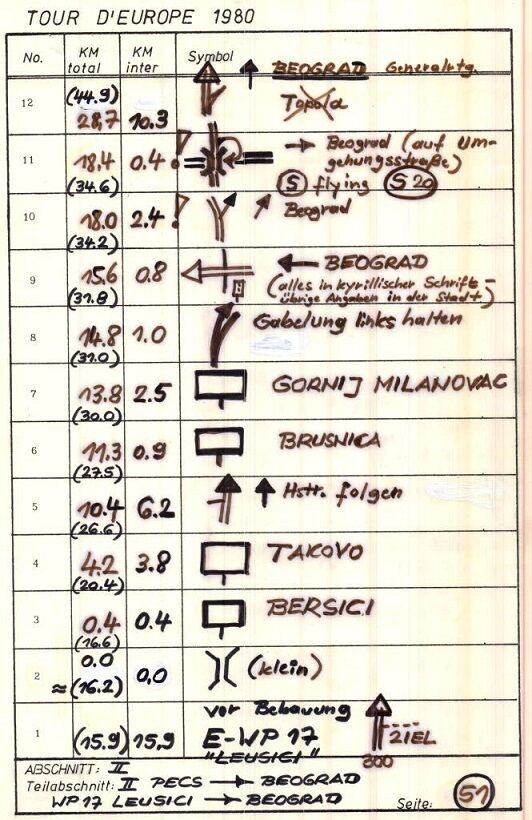 TOUR D'EUROPE 1980
No. KM total KM inter Symbol BEOGRAD Generalrtg.
12 (44.9) 28,7 10.3 Topola
11 18,4 (34.6) 0.4 ! → Beograd (auf Um-
gehungsstraße)
S flying S 20
10 18.0 (34.2) 2.4 ! Beograd
9 15,6 (31.8) 0.8 ← BEOGRAD
(alles in kyrillischer Schrift -
übrige Angaben in der Stadt)
8 14.8 (31.0) 1.0 Gabelung links halten
7 13.8 (30.0) 2.5 GORNIJ MILANOVAC
6 11.3 (27.5) 0.9 BRUSNICA
5 10.4 (26.6) 6.2 ↑ Hstr. folgen
4 4.2 (20.4) 3.8 TAKOVO
3 0.4 (16.6) 0.4 BERSICI
2 0.0 ≈(16.2) 0,0 (klein)
vor Bebauung
1 (15.9) 15,9 E-WP 17
"LEUSICI"
ZIEL
200
ABSCHNITT: II
Teilabschnitt: II PECS → BEOGRAD
WP 17 LEUSICI → BEOGRAD Seite: 51